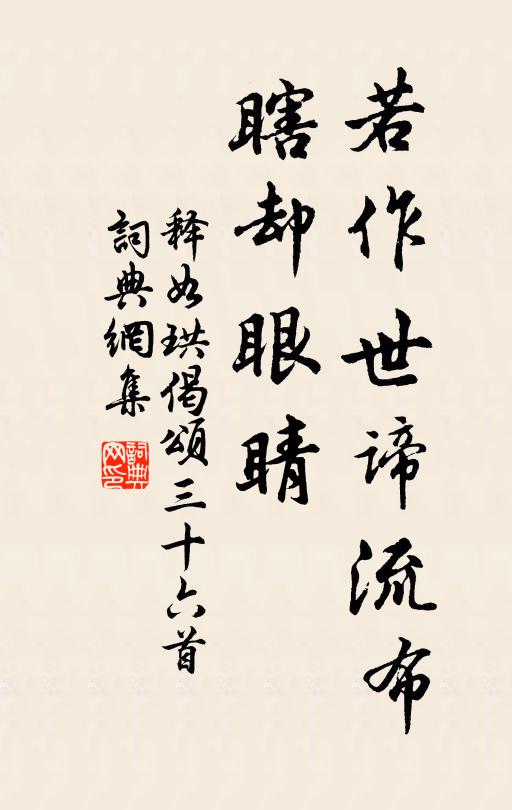 若作世諦流布
瞎却眼睛
释如珙偈頌三十六首
詞典網集
詞典網印